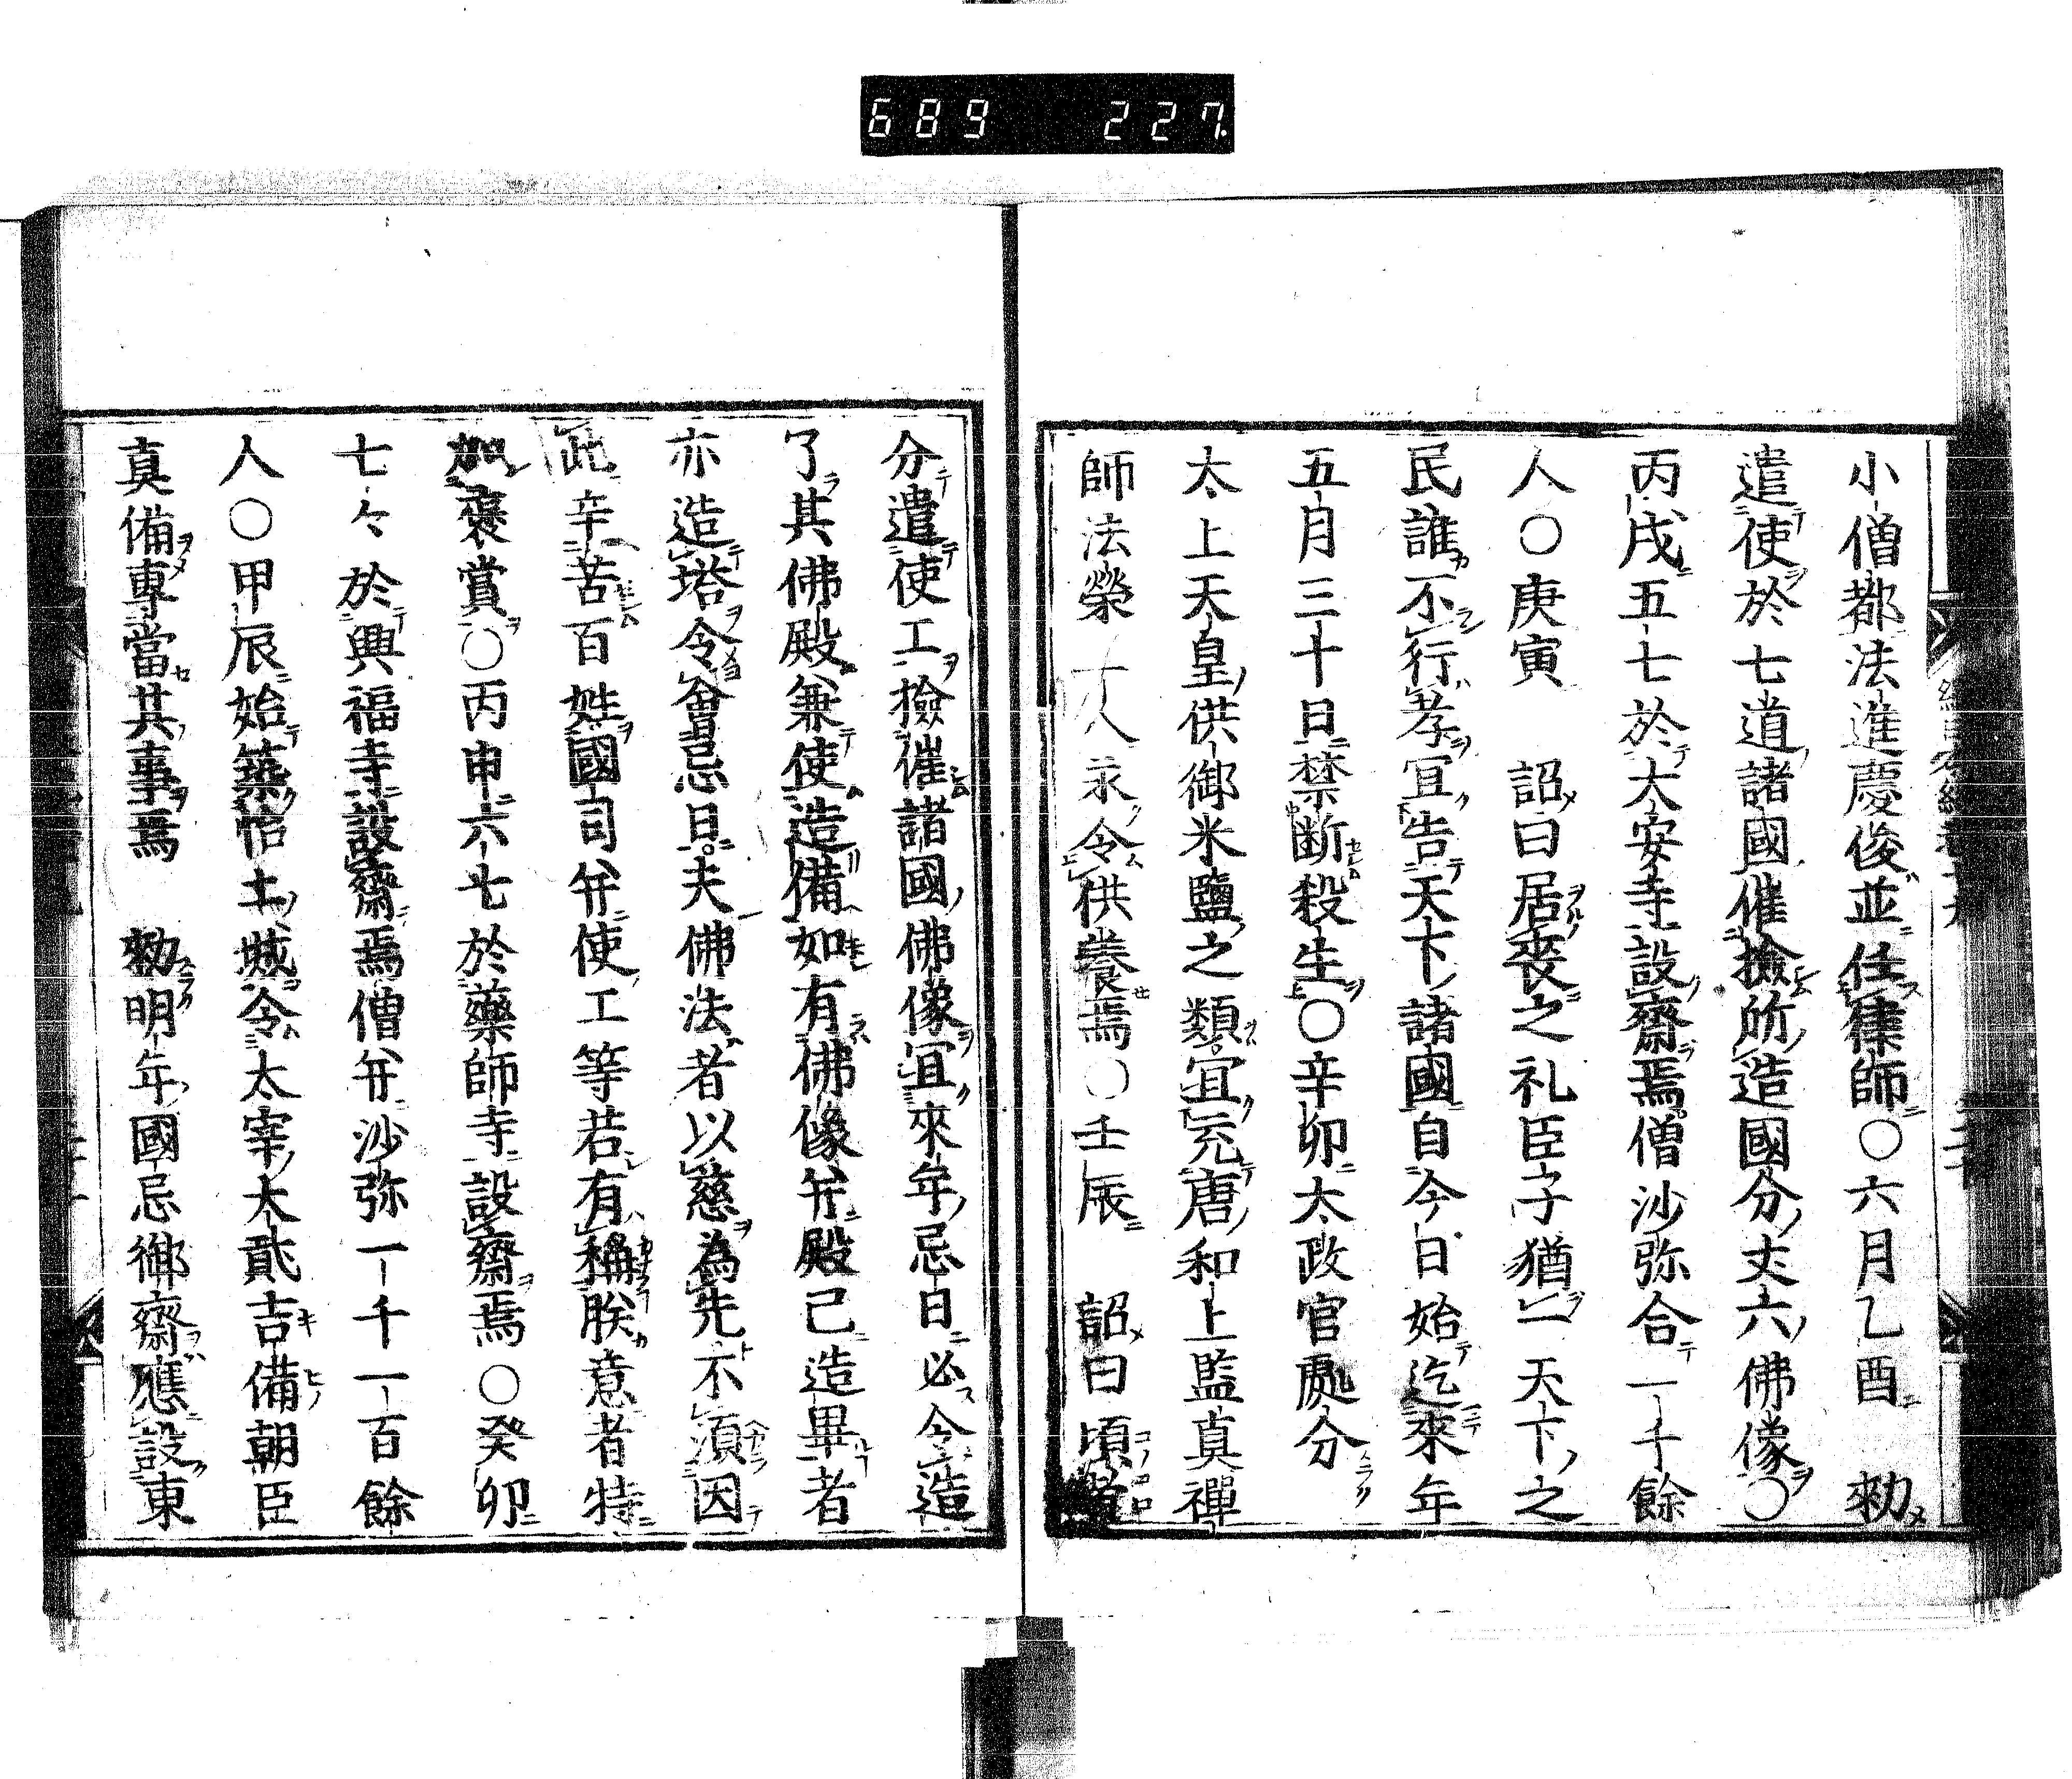 689 227
小僧都法進慶俊並任律師〇六月乙酉 勑
遣使於七道諸國催撿所造國分丈六佛像〇
丙戌五七於大安寺設齋焉僧沙弥合一千餘
人〇庚寅 詔曰居喪之礼臣子猶一天下之
民誰不行孝冝告天下諸國自今日始迄來年
五月三十日禁断殺生〇辛卯太政官處分
太上天皇供御米鹽之類冝充唐和上監真禪
師法榮 二人永令供養焉〇壬辰 詔曰頃者
分遣使工撿催諸國佛像冝來年忌日必令造
了其佛殿兼使造備如有佛像并殿已造畢者
亦造塔令會忌日夫佛法者以慈為先不須因
此辛苦百姓國司并使工等若有稱朕意者特
加褒賞〇丙申六七於藥師寺設齋焉〇癸卯
七々於興福寺設齋焉僧并沙弥一千一百餘
人〇甲辰始築怡土城令太宰大貳吉備朝臣
真備專當其事焉 勑明年國忌御齋應設東